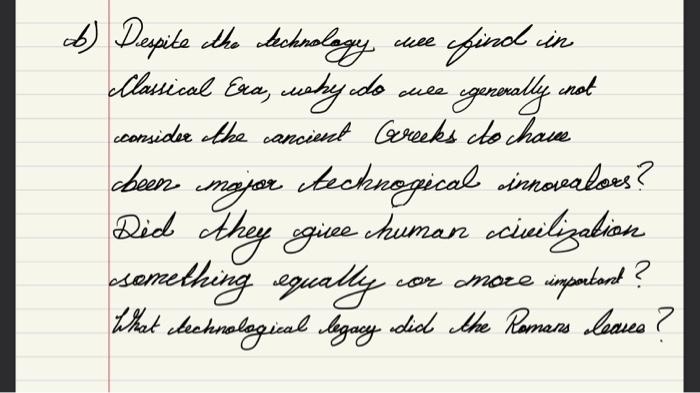 b) Despite the technology we find in
Classical Era, why do we generally not
consider the ancient Greeks to have
been major technogical innovators?
Did they give human civilization
something equally or more important?
What technological legacy did the Romans leave?